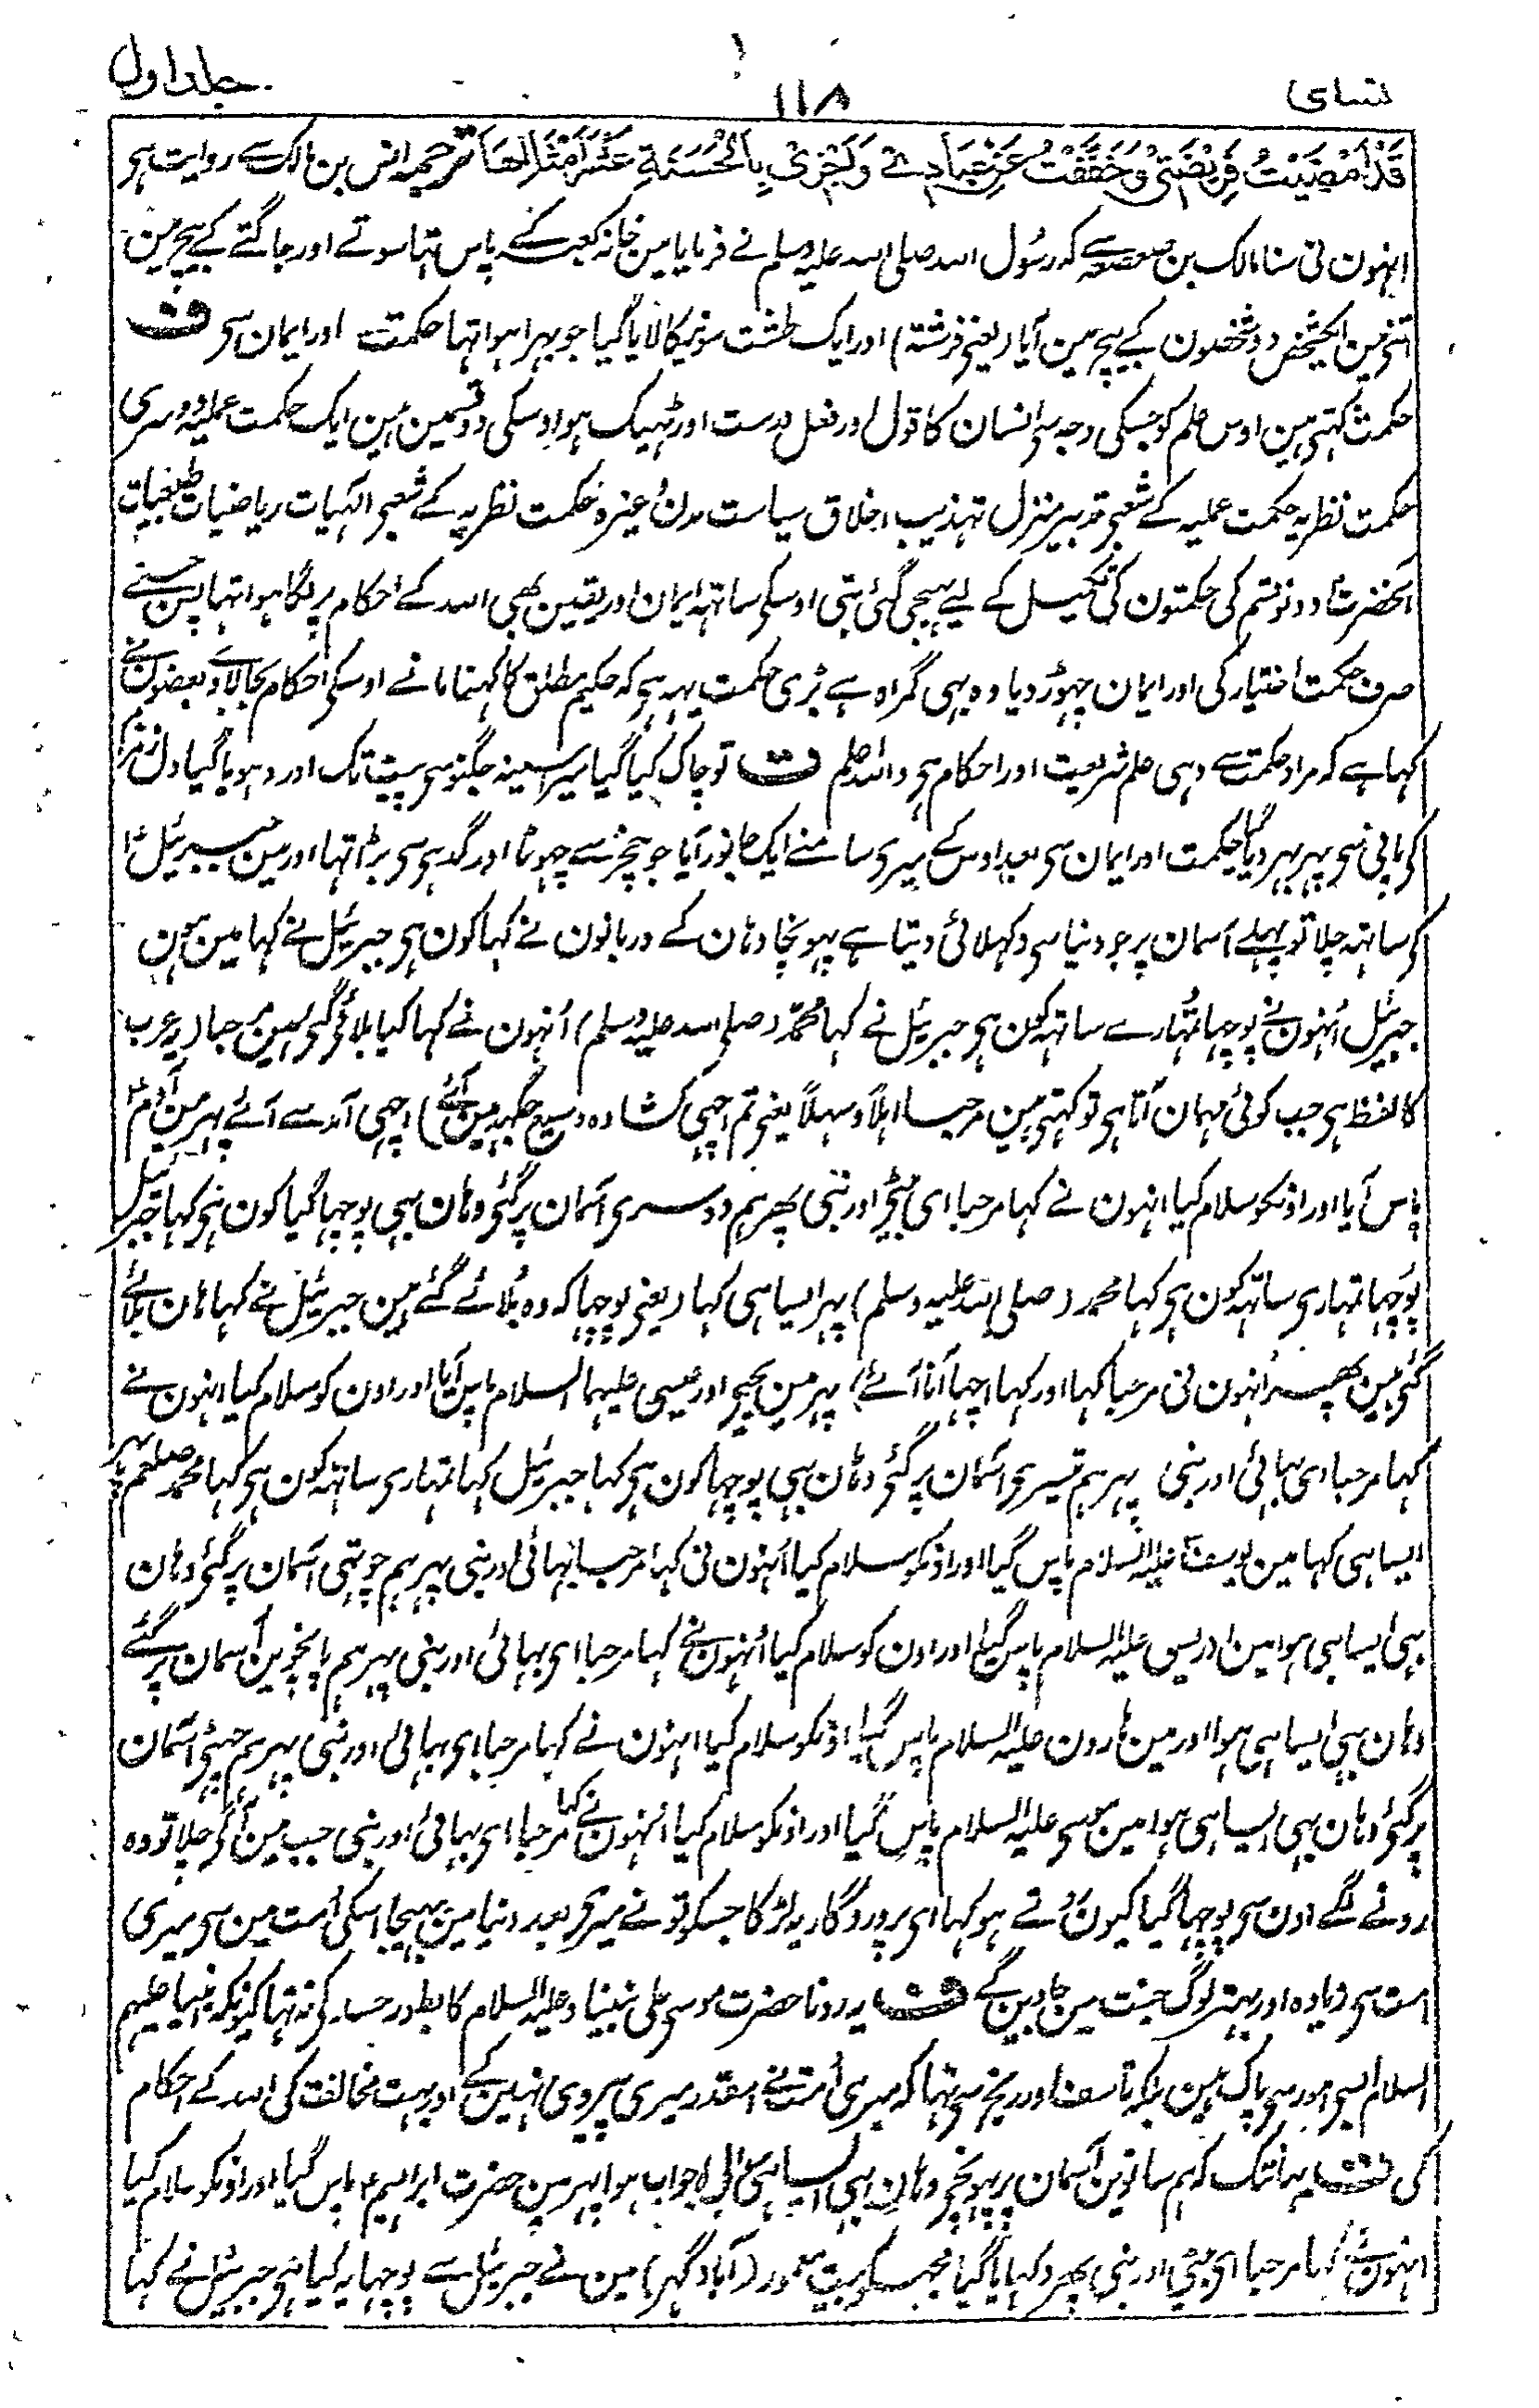 نسای ۱۱۸ جلد اول
قَدْ اَمْضَيْتُ فَرِيْضَتِيْ وَخَفَّفْتُ عَنْ عِبَادِيْ وَيَجْزِيْ بِالْحَسَنَةِ عَشْرَ اَمْثَالِهَا ترجمہ انس بن مالک سے روایت ہی
انہون نی سنا مالک بن صعصعہ سے کہ رسُول اللہ صلی اللہ علیہ وسلم نے فرمایا مین خانہ کعبہ کے پاس تہا سوتے اور جاگتے کے بیچ مین
اتنی مین ایکشخص دو شخصون کے بیچ مین آیا (یعنی فرشتہ) اور ایک طشت سونیکا لایا گیا جو بہرا ہوا تہا حکمت اور ایمان سی ف
حکمت کہتی ہین اوس علم کو جسکی وجہ سی انسان کا قول اور فعل درست اور ٹہیک ہو اوسکی دو قسمین ہین ایک حکمت عملیہ دوسری
حکمت نظریہ حکمت عملیہ کے شعبی تدبیر منزل تہذیب اخلاق سیاست مدن وغیرہ حکمت نظریہ کے شعبی الہیات ریاضیات طبعیات
آنحضرت دونو قسم کی حکمتون کی تکمیل کے لیے بہیجی گئی تہی اوسکی ساتہہ ایمان اور یقین بھی اللہ کے احکام پر لگا ہوا تہا پس جسنے
صرف حکمت اختیار کی اور ایمان چہوڑ دیا وہ بہی گمراہ ہے بڑی حکمت یہہ ہی کہ حکیم مطلق کا کہنا مانے اوسکی احکام بجا لاوے بعضون نے
کہا ہے کہ مراد حکمت سے وہی علم شریعت اور احکام ہی واللہ اعلم ف تو چاک کیا گیا میرا سینہ جگنو سی پیٹ تک اور دہویا گیا دل زمزم
کی پانی سی پہر بہر دیا گیا حکمت اور ایمان سی بعد اوس کے میری سامنے ایک جانور آیا جو خچر سے چہوٹا اور گدہی سی بڑا تہا اور مین جبرئیل
کی ساتہہ چلا تو پہلے آسمان پر جو دنیا سی دکہلائی دیتا ہے پہونچا وہان کے دربانون نے کہا کون ہی جبرئیل نے کہا مین ہون
جبرئیل اُنہون نے پوچہا تُمہارے ساتہہ کون ہی جبرئیل نے کہا محمّد (صلی اللہ علیہ وسلم) اُنہون نے کہا کیا بلائی گئی ہین مرحبا (یہ عرب
کا لفظ ہی جب کوئی مہمان آتا ہی تو کہتی ہین مرحبا اہلاً و سہلاً یعنی تم اچہی کشادہ وسیع جگہہ مین آئے) اچہی آمد سے آئے پہر مین آدم
پاس آیا اور اونکو سلام کیا انہون نے کہا مرحبا ای بیٹی اور نبی پھر ہم دوسری آسمان پر گئی وہان بہی پوچہا گیا کون ہی کہا جبرئیل
پوچہا تمہاری ساتہہ کون ہی کہا محمد (صلی اللہ علیہ وسلم) پہر ایسا ہی کہا (یعنی پوچہا کہ وہ بُلائے گئے ہین جبرئیل نے کہا ہان بلائے
گئی ہین پھر اُنہون نی مرحبا کہا اور کہا اچہا آنا آئے) پہر مین یحیی اور عیسی علیہما السلام پاس آیا اور اون کو سلام کیا انہون نے
کہا مرحبا ای بہائی اور نبی پہر ہم تیسری آسمان پر گئی وہان بہی پوچہا کون ہی کہا جبرئیل کہا تمہاری ساتہہ کون ہی کہا محمد صلعم پہر
ایسا ہی کہا مین یوسف علیہ السلام پاس گیا اور اونکو سلام کیا اُنہون نی کہا مرحبا ای بہائی اور نبی پہر ہم چوتہی آسمان پر گئی وہان
بہی ایسا ہی ہوا مین ادریس علیہ السلام پاس گیا اور اون کو سلام کیا اُنہون نے کہا مرحبا ای بہائی اور نبی پہر ہم پانچوین آسمان پر گئے
وہان بہی ایسا ہی ہوا اور مین ہارون علیہ السلام پاس گیا اونکو سلام کیا انہون نے کہا مرحبا ای بہائی اور نبی پہر ہم چہٹی آسمان
پر گئی وہان بہی ایسا ہی ہوا مین موسی علیہ السلام پاس گیا اور اونکو سلام کیا اُنہون نے کہا مرحبا ای بہائی اور نبی جب مین آگی چلا تو وہ
رونے لگے اون سی پوچہا گیا کیون روتے ہو کہا ای پروردگار یہ لڑکا جسکو تو نے میری بعد دنیا مین بہیجا اسکی اُمت مین سی میری
امت سی زیادہ اور بہتر لوگ جنت مین جاوین گے ف یہ رونا حضرت موسی علی نبینا وعلیہ السلام کا بطور حسد کی نہ تہا کیونکہ انبیا علیہم
السلام ایسی امور سی پاک ہین بلکہ تاسف اور رنج سی تہا کہ میری اُمت نے اسقدر میری پیروی نہین کی اور بہت مخالفت کی اللہ کے احکام
کی ف یہانتک کہ ہم ساتوین آسمان پر پہونچی وہان بہی ایسا ہی سوال و جواب ہوا پہر مین حضرت ابراہیم پاس گیا اور اونکو سلام کیا
انہون نے کہا مرحبا ای بیٹی اور نبی پھر دکہایا گیا مجہکو بیت معمور (آباد گہر) مین نے جبرئیل سے پوچہا یہ کیا ہی جبرئیل نے کہا